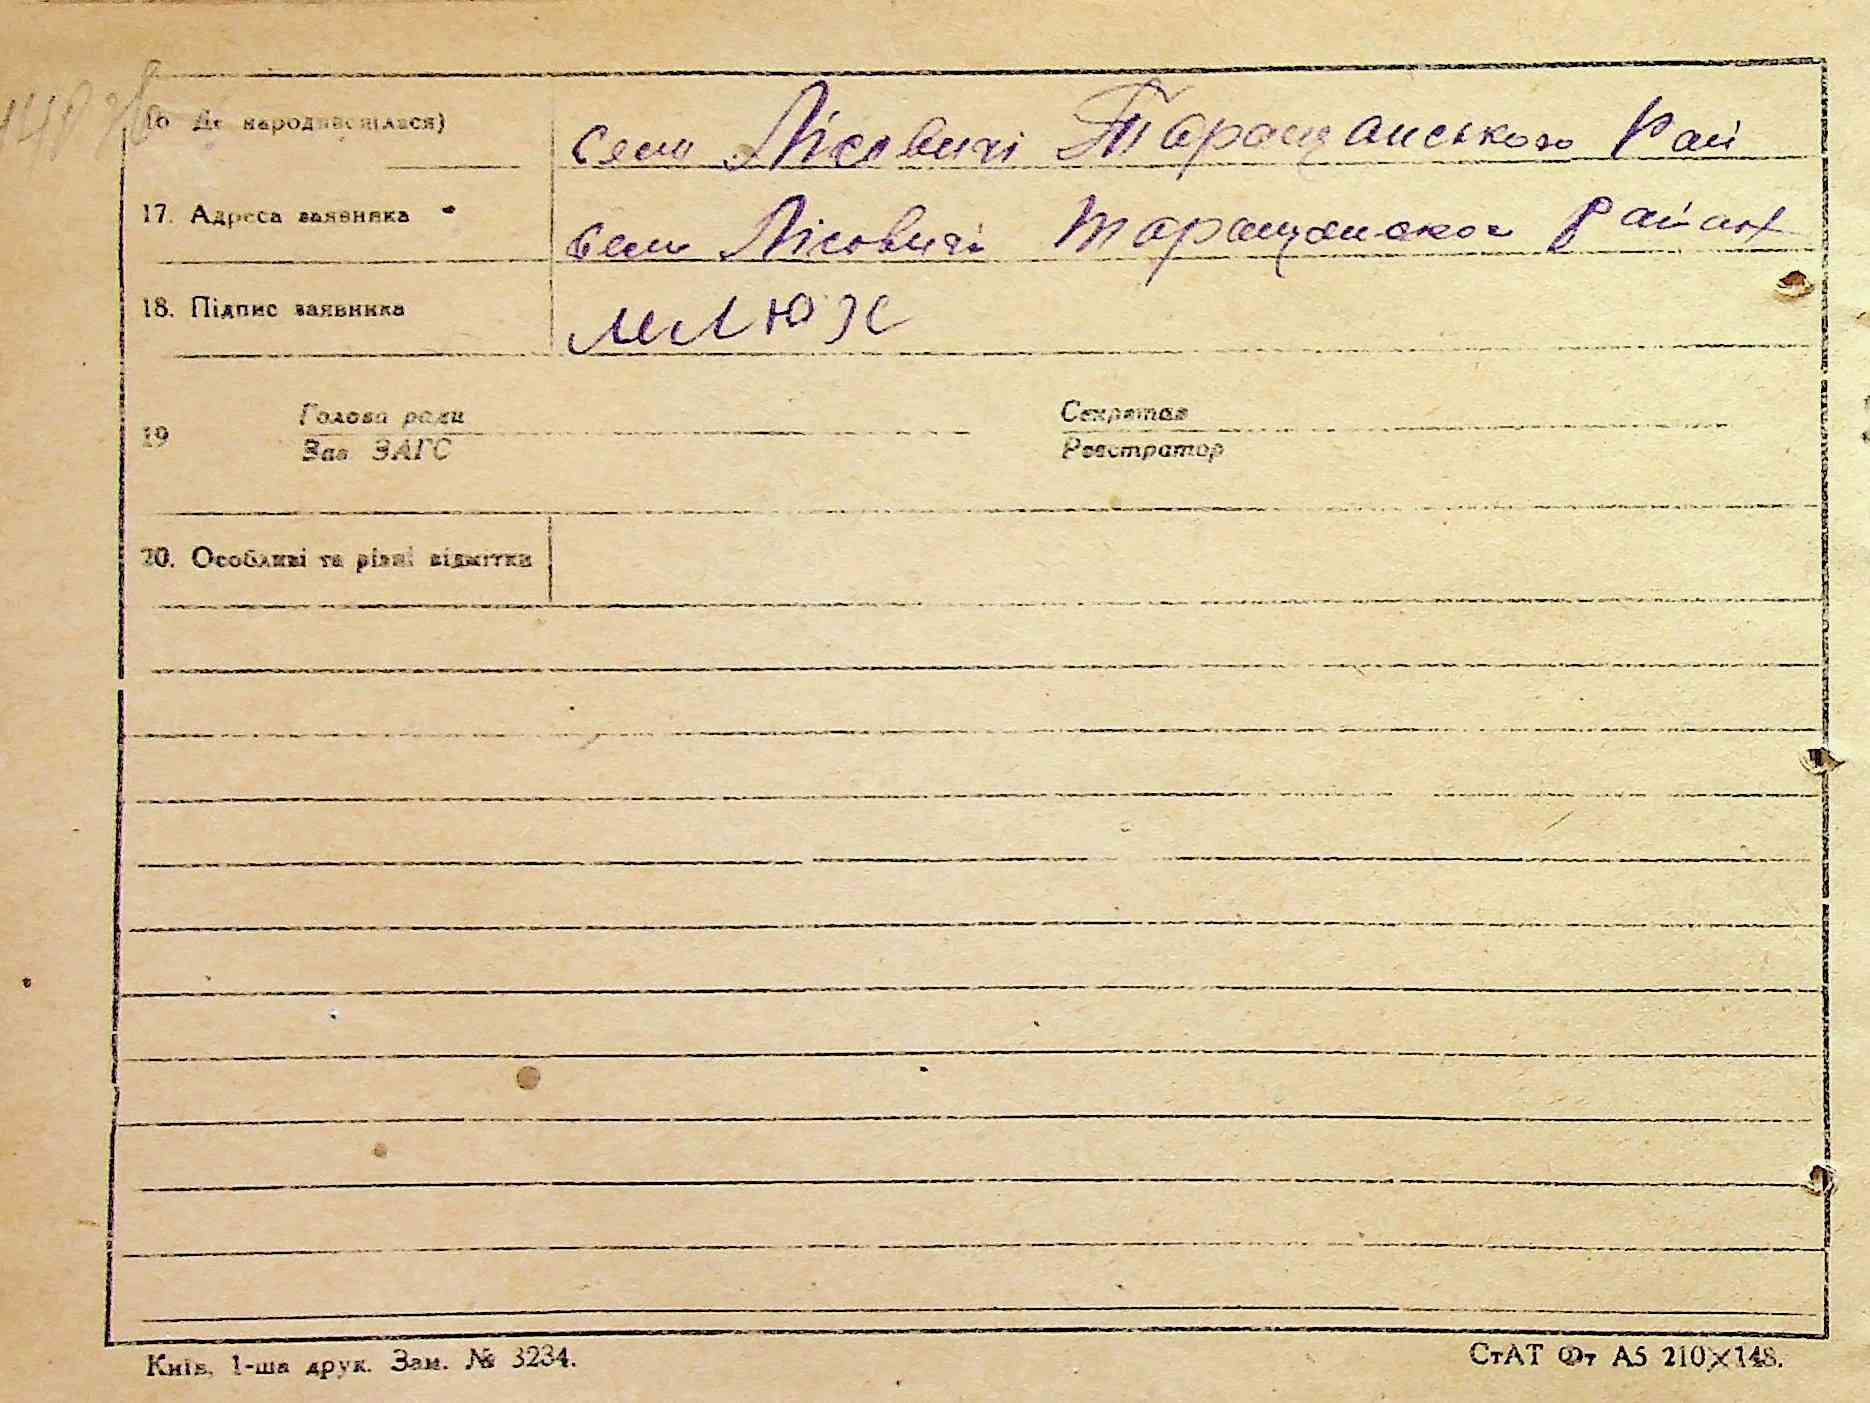 16 Де народився(лася) село Лісовичі Таращанського Рай
17. Адреса заявника село Лісовичі Таращанског Район
18. Підпис заявника
19 Голова ради Секретар
Зав ЗАГС Реєстратор
20. Особливі та різні відмітки
Київ, 1-ша друк. Зам. № 3234. СтАТ Фт А5 210×148.